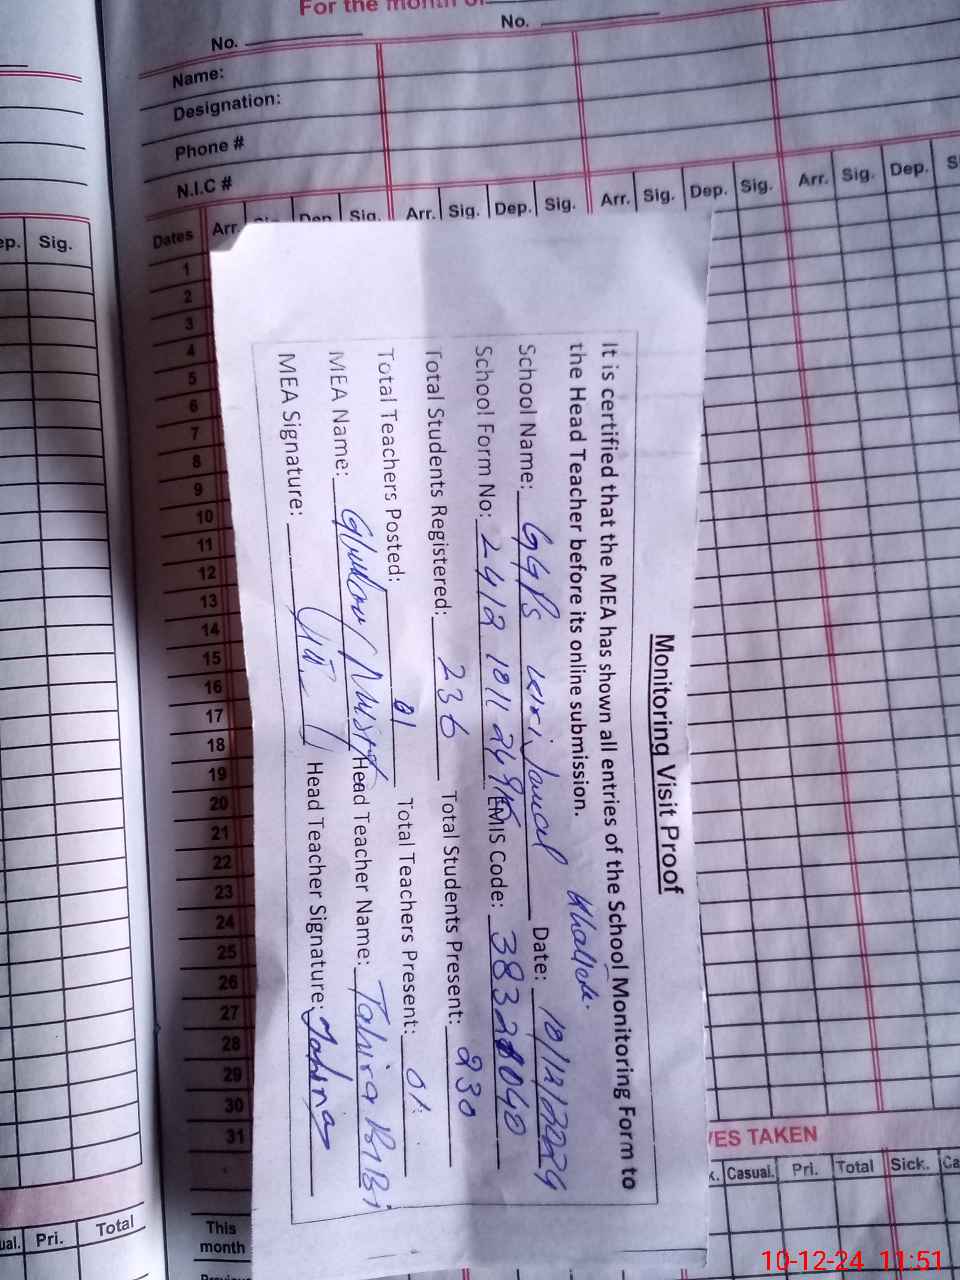 For the month of
No.
No.
Name:
Designation:
Phone #
N.I.C #
Dates Arr. Sig. Dep. Sig. Arr. Sig. Dep. Sig. Arr. Sig. Dep. Sig. Arr. Sig. Dep.
ep. Sig.
1
2
3
4
5
6
7
8
9
10
11
12
13
14
15
16
17
18
19
20
21
22
23
24
25
26
27
28
29
30
31
Monitoring Visit Proof
It is certified that the MEA has shown all entries of the School Monitoring Form to
the Head Teacher before its online submission.
School Name: GGPS Jamal Khallak Date: 10/12/2024
School Form No: EMIS Code:
Total Students Registered: 236 Total Students Present: 230
Total Teachers Posted: 01 Total Teachers Present: 01
MEA Name: Head Teacher Name: Tahira BiBi
MEA Signature: Head Teacher Signature: Tahira
VES TAKEN
k. Casual. Pri. Total Sick. Ca
ual. Pri. Total
This
month
10-12-24 11:51